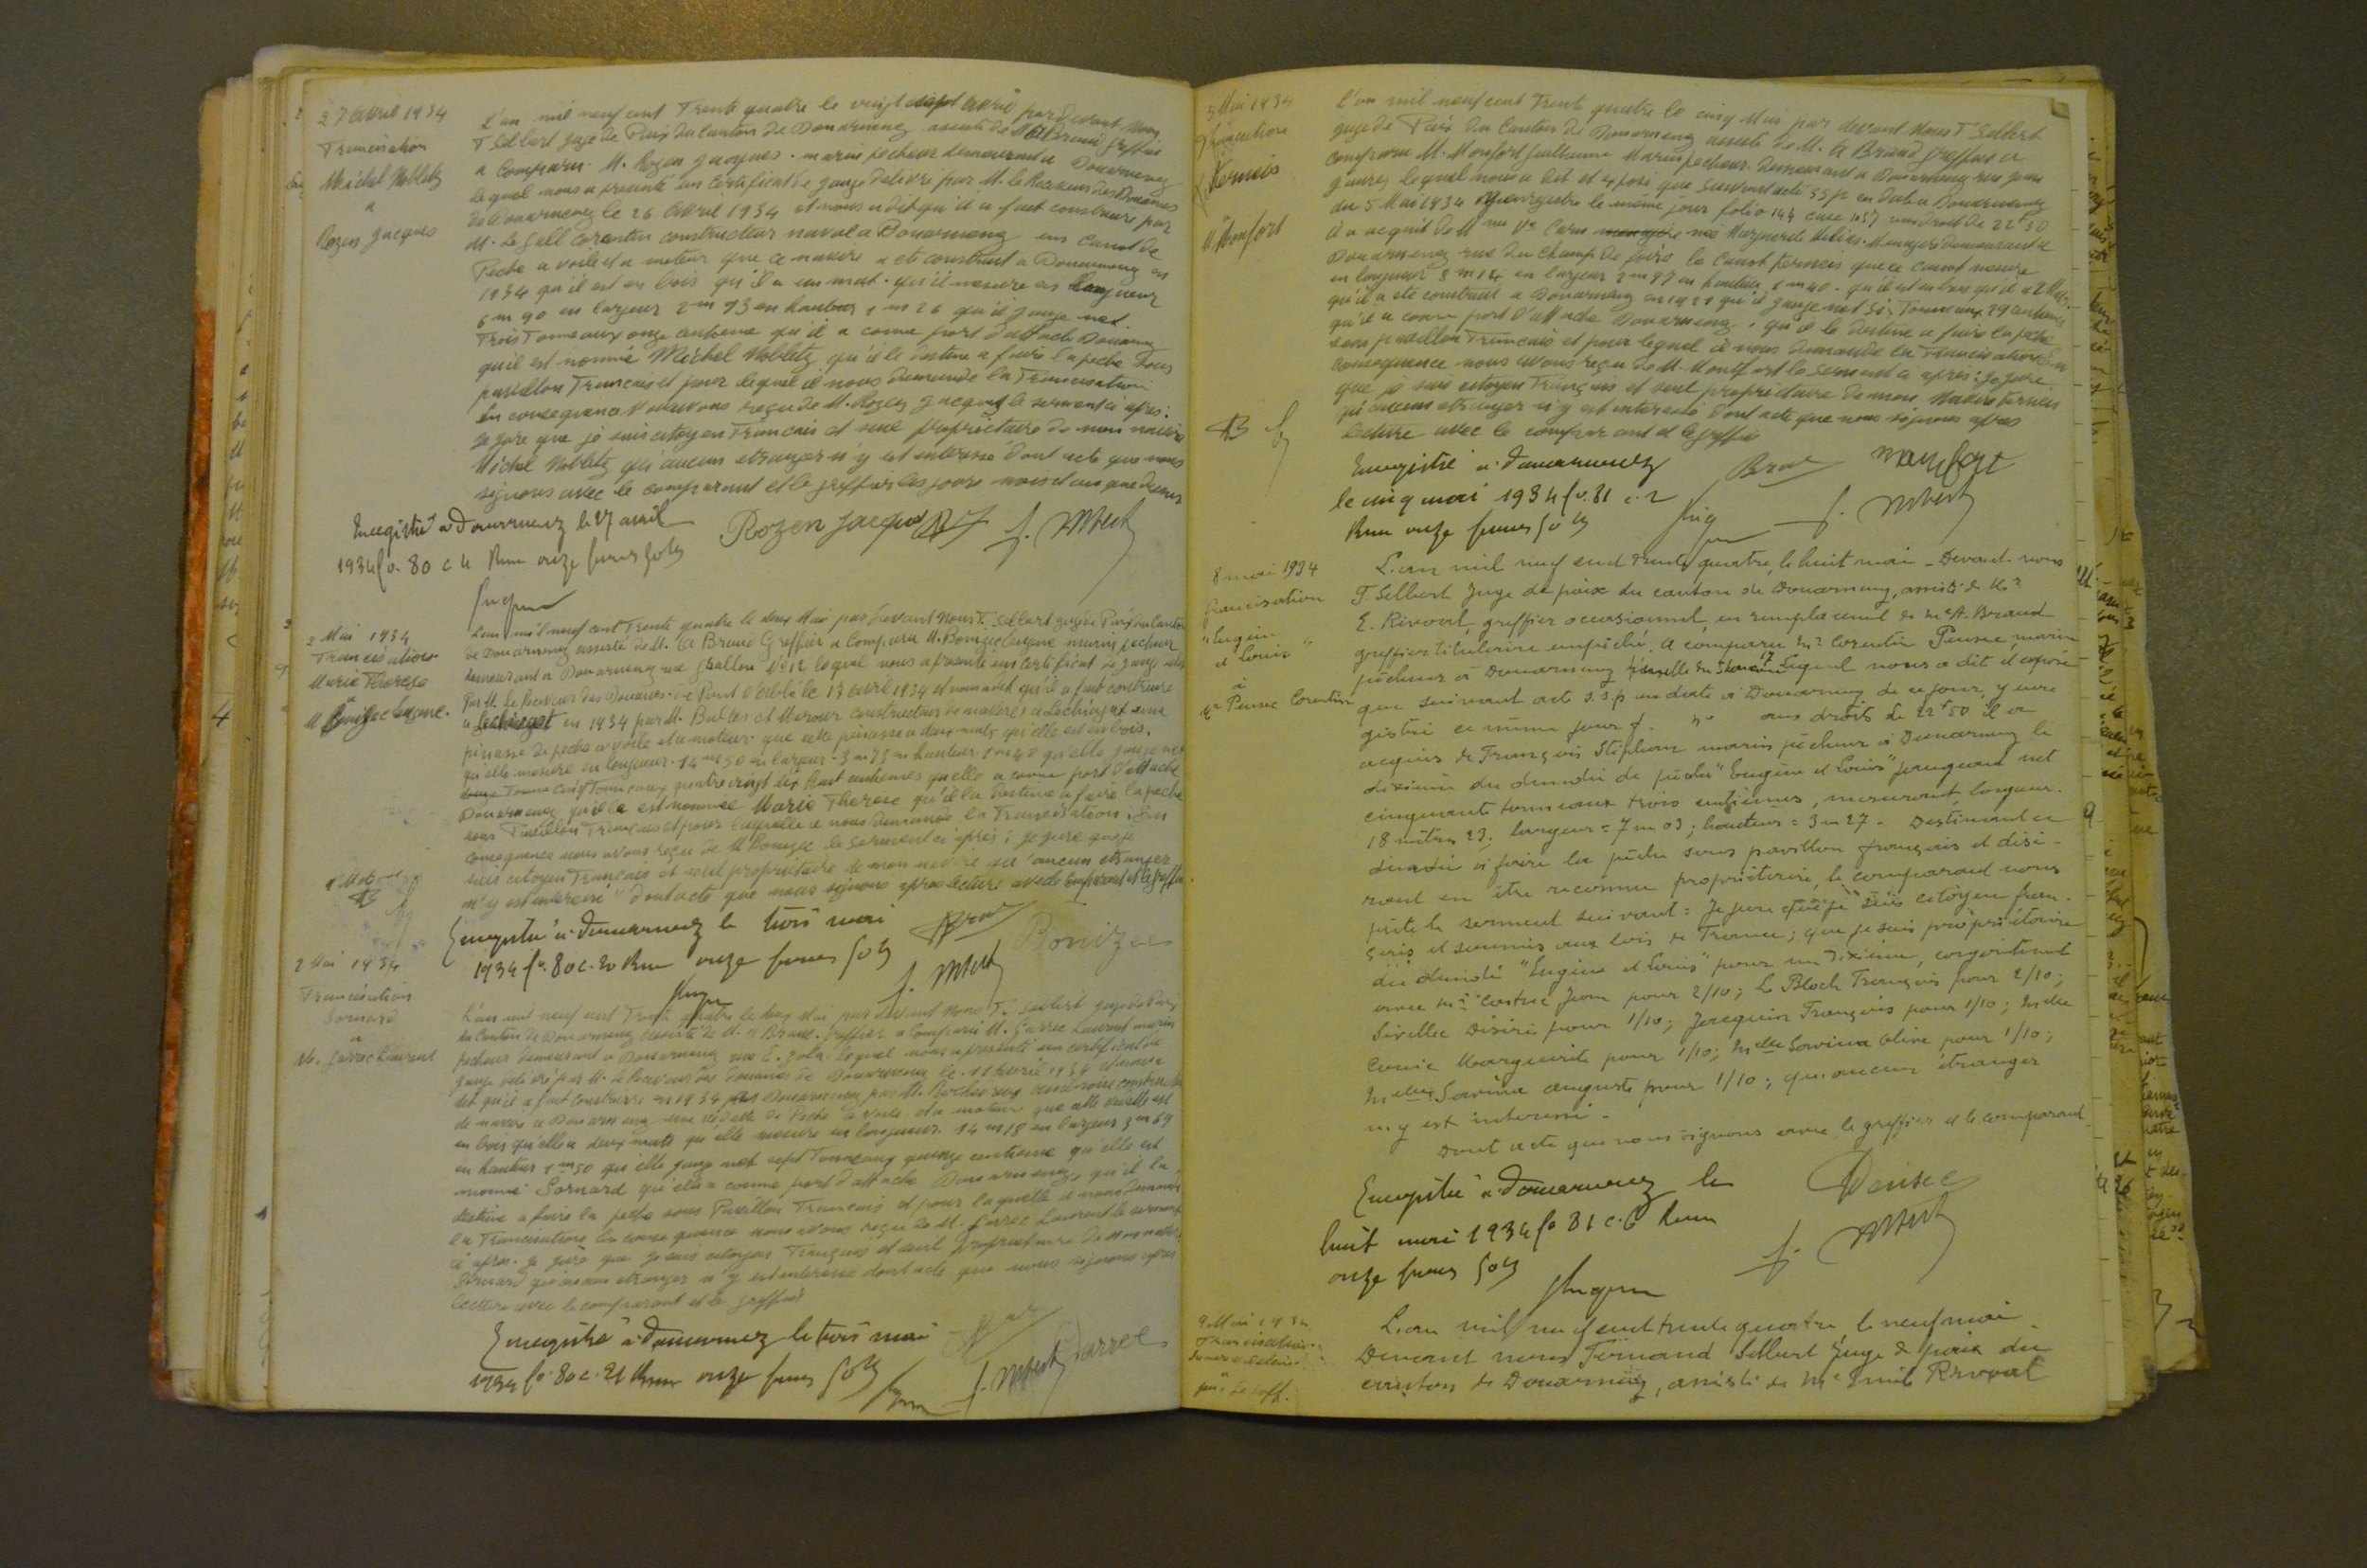 27 Avril 1934
Francisation
Michel Nobletz
a
Rozen Jacques
L'an mil neuf cent Trente quatre le vingt sept Avril par devant Nous
T Selbert juge de Paix du Canton de Douarnenez assisté de M. A Braud Greffier
a Comparu M. Rozen Jacques. marin pecheur demeurant a Douarnenez
lequel nous a presenté un Certificat de jauge delivré par M. le Receveur des Douanes
de Douarnenez le 26 Avril 1934 et nous a dit qu'il a fait construire par
M. Le Gall Corentin constructeur naval a Douarnenez un Canot de
Peche a voile et a moteur que ce navire a ete construit a Douarnenez en
1934 qu'il est en bois qu'il a un mat. qu'il mesure en longueur
6 m 90 en largeur 2 m 93 en hauteur 1 m 26 qu'il jauge net.
Trois Tonneaux onze centieme qu'il a comme port d'attache Douarnenez
qu'il est nommé Michel Nobletz qu'il le destine a faire la peche sous
pavillon Francais et pour lequel il nous demande la Francisation
En consequence Nous avons reçu de M. Rozen Jacques le serment ci apres:
Je jure que je suis citoyen Francais et seul proprietaire de mon navire
Michel Nobletz qu'aucun etranger n'y est interessé dont acte que nous
signons avec le comparant et le greffier les jours mois et an que dessus
Enregistré a Douarnenez le 27 avril
1934 fo. 80 c 4 Recu onze francs 50 c
Rozen Jacques
2 Mai 1934
Francisation
Marie Therese
a
M. Bonizec Eugene.
L'an mil neuf cent Trente quatre le deux Mai par devant Nous T. Selbert juge de Paix du Canton
de Douarnenez assisté de M. A Braud Greffier a Comparu M. Bonizec Eugene marin pecheur
demeurant a Douarnenez rue No 12 lequel nous a presenté un certificat de jauge
Par M. le Receveur des Douanes de Pont l'abbé le 13 Avril 1934 et nous a dit qu'il a fait construire
a Lechiagat en 1934 par M. Bultes et constructeur de navires a Lechiagat une
pinasse de peche a voile et a moteur que cette pinasse a deux mats qu'elle est en bois.
qu'elle mesure en longueur. 14 m 50 en largeur - 3 m 73 en hauteur 1 m 40 qu'elle jauge net
Cinq Tonneaux quatre vingt dix huit centiemes quelle a comme port d'attache
Douarnenez quelle est nommee Marie Therese qu'il la destine a faire la peche
sous Pavillon Français et pour laquelle il nous demande la Francisation. En
consequence nous avons reçu de M Bonizec le serment ci aprés: je jure que je
suis citoyen Francais et seul proprietaire de mon navire qu'aucun etranger
n'y est interessé dont acte que nous signons apres lecture avec le Comparant et le greffier.
Enregistré a Douarnenez le trois mai
1934 fo. 80 c. 20 Recu onze francs 50 c
Bonizec
2 Mai 1934
Francisation
Sornard
a
M. Garrec Laurent
L'an mil neuf cent Trente quatre le deux Mai par devant Nous T. Selbert juge de Paix
du Canton de Douarnenez assisté de M. A Braud. greffier a Comparu M. Garrec Laurent marin
pecheur demeurant a Douarnenez rue E. Zola. lequel nous a presenté un certificat de
jauge delivré par M. le Receveur des douanes de Douarnenez le. 11 Avril 1934 et nous a
dit qu'il a fait construire en 1934 a Douarnenez par M.
de navire a Douarnenez une vedette de Peche a voile et a moteur que cette vedette est
en bois qu'elle a deux mats qu'elle mesure en longueur. 14 m 18 en largeur 3 m 69
en hauteur 1 m 50 qu'elle jauge net sept Tonneaux quinze centieme qu'elle est
nommé Sornard qu'elle a comme port d'attache Douarnenez, qu'il la
destine a faire la peche sous Pavillon Francais et pour laquelle il nous demande
la Francisation En consequence nous avons reçu de M. Garrec Laurent le serment
ci apres. Je jure que je suis citoyen Français et seul proprietaire de mon navire
Sornard qu'aucun etranger n'y est interesse dont acte que nous signons apres
lecture avec le comparant et le greffier
Enregistré a Douarnenez le trois mai
1934 fo. 80 c. 21 Recu onze francs 50 c
Garrec
5 Mai 1934
Francisation
M. Monfort
L'an mil neuf cent Trente quatre le cinq Mai par devant Nous T Selbert
juge de Paix du Canton de Douarnenez assisté de M. A Braud greffier a
comparu M. Monfort Guillaume Marin pecheur. demeurant a Douarnenez rue Jean
Jaurès lequel nous a dit et exposé que suivant acte ssp en date a Douarnenez
du 5 Mai 1934 y enregistre le meme jour folio 144 case 1057 aux droits de 22f50
il a acquis de Mme Ve Carn née Marguerite Helias. Menagere demeurant a
Douarnenez rue du Champ de foire le Canot que ce canot mesure
en longueur 8 m 14 en largeur 2 m 97 en hauteur 1 m 40 - qu'il est en bois qu'il a 2 Mats
qu'il a ete construit a Douarnenez en 1921 qu'il jauge net six Tonneaux 29 centiemes
qu'il a comme port d'attache Douarnenez. qu'il le destine a faire la peche
sous pavillon Francais et pour lequel il nous demande la Francisation En
consequence nous avons reçu de M. Monfort le serment ci aprés: je jure.
que je suis citoyen Français et seul proprietaire de mon Navire
qu'aucun etranger n'y est interessé dont acte que nous signons apres
lecture avec le comparant et le greffier
Enregistré a Douarnenez
le cinq mai 1934 fo. 81 c. 2
Recu onze francs 50 c
Monfort
8 mai 1934
Francisation
"Eugène
et Louis"
à
Mr Pensec Corentin
L'an mil neuf cent trente quatre, le huit mai - Devant nous
T. Selbert Juge de paix du canton de Douarnenez, assisté de Mr
E. Rivoal, greffier occasionnel, en remplacement de Me A. Braud
greffier titulaire empêché. A comparu Mr Corentin Pensec, marin
pêcheur à Douarnenez lequel nous a dit et exposé
que suivant acte s.s.p en date à Douarnenez de ce jour, y enre
gistré ce même jour fo no aux droits de 22f50 il a
acquis de François Stéphan marin pêcheur à Douarnenez le
dixième du dundée de pêche "Eugène et Louis" jaugeant net
cinquante tonneaux trois centièmes, mesurant, longueur:
18 mètres 23; largeur = 7 m 03; hauteur = 3 m 27 - Destinant ce
dundée à faire la pêche sous pavillon français et dési-
rant en être reconnu propriétaire, le comparant nous
prête le serment suivant: Je jure que je suis citoyen fran-
çais et soumis aux lois de France; que je suis propriétaire
du dundée "Eugène et Louis" pour un dixième, conjointement
avec Mr Castrec Jean pour 2/10; Le Bloch François pour 2/10;
Sivellec Désiré pour 1/10; Jacquin François pour 1/10; Melle
Marguerite pour 1/10; Melle Savina Céline pour 1/10;
Melle Savina Auguste pour 1/10; qu'aucun étranger
n'y est intéressé -
Dont acte que nous signons avec le greffier et le comparant.
Enregistré a Douarnenez le
huit mai 1934 fo 81 c. 6 Recu
onze francs 50 c
Pensec
9 Mai 1934
Francisation
L'an mil neuf cent trente quatre, le neuf mai.
Devant nous Fernand Selbert Juge de paix du
canton de Douarnenez, assisté de Me Emile Rivoal